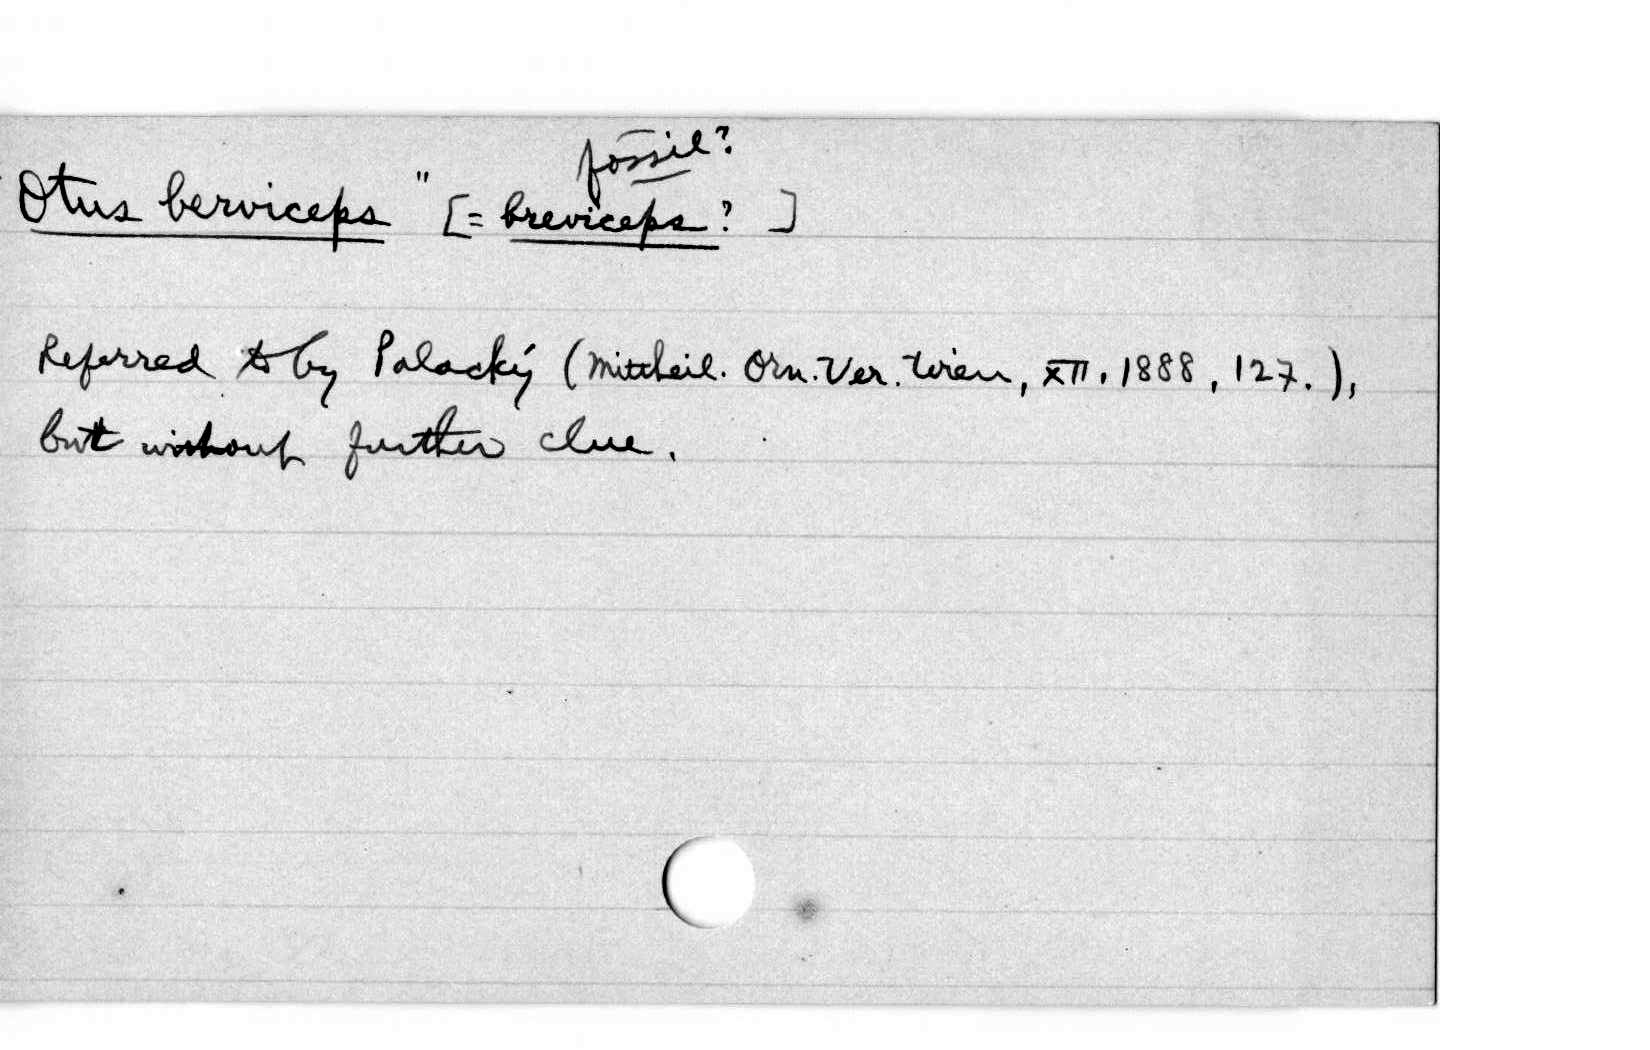 fossil?
"Otus berviceps" [= breviceps? ]
Referred to by Palacký (Mittheil. Orn. Ver. Wien, XII, 1888, 127.),
but without further clue.